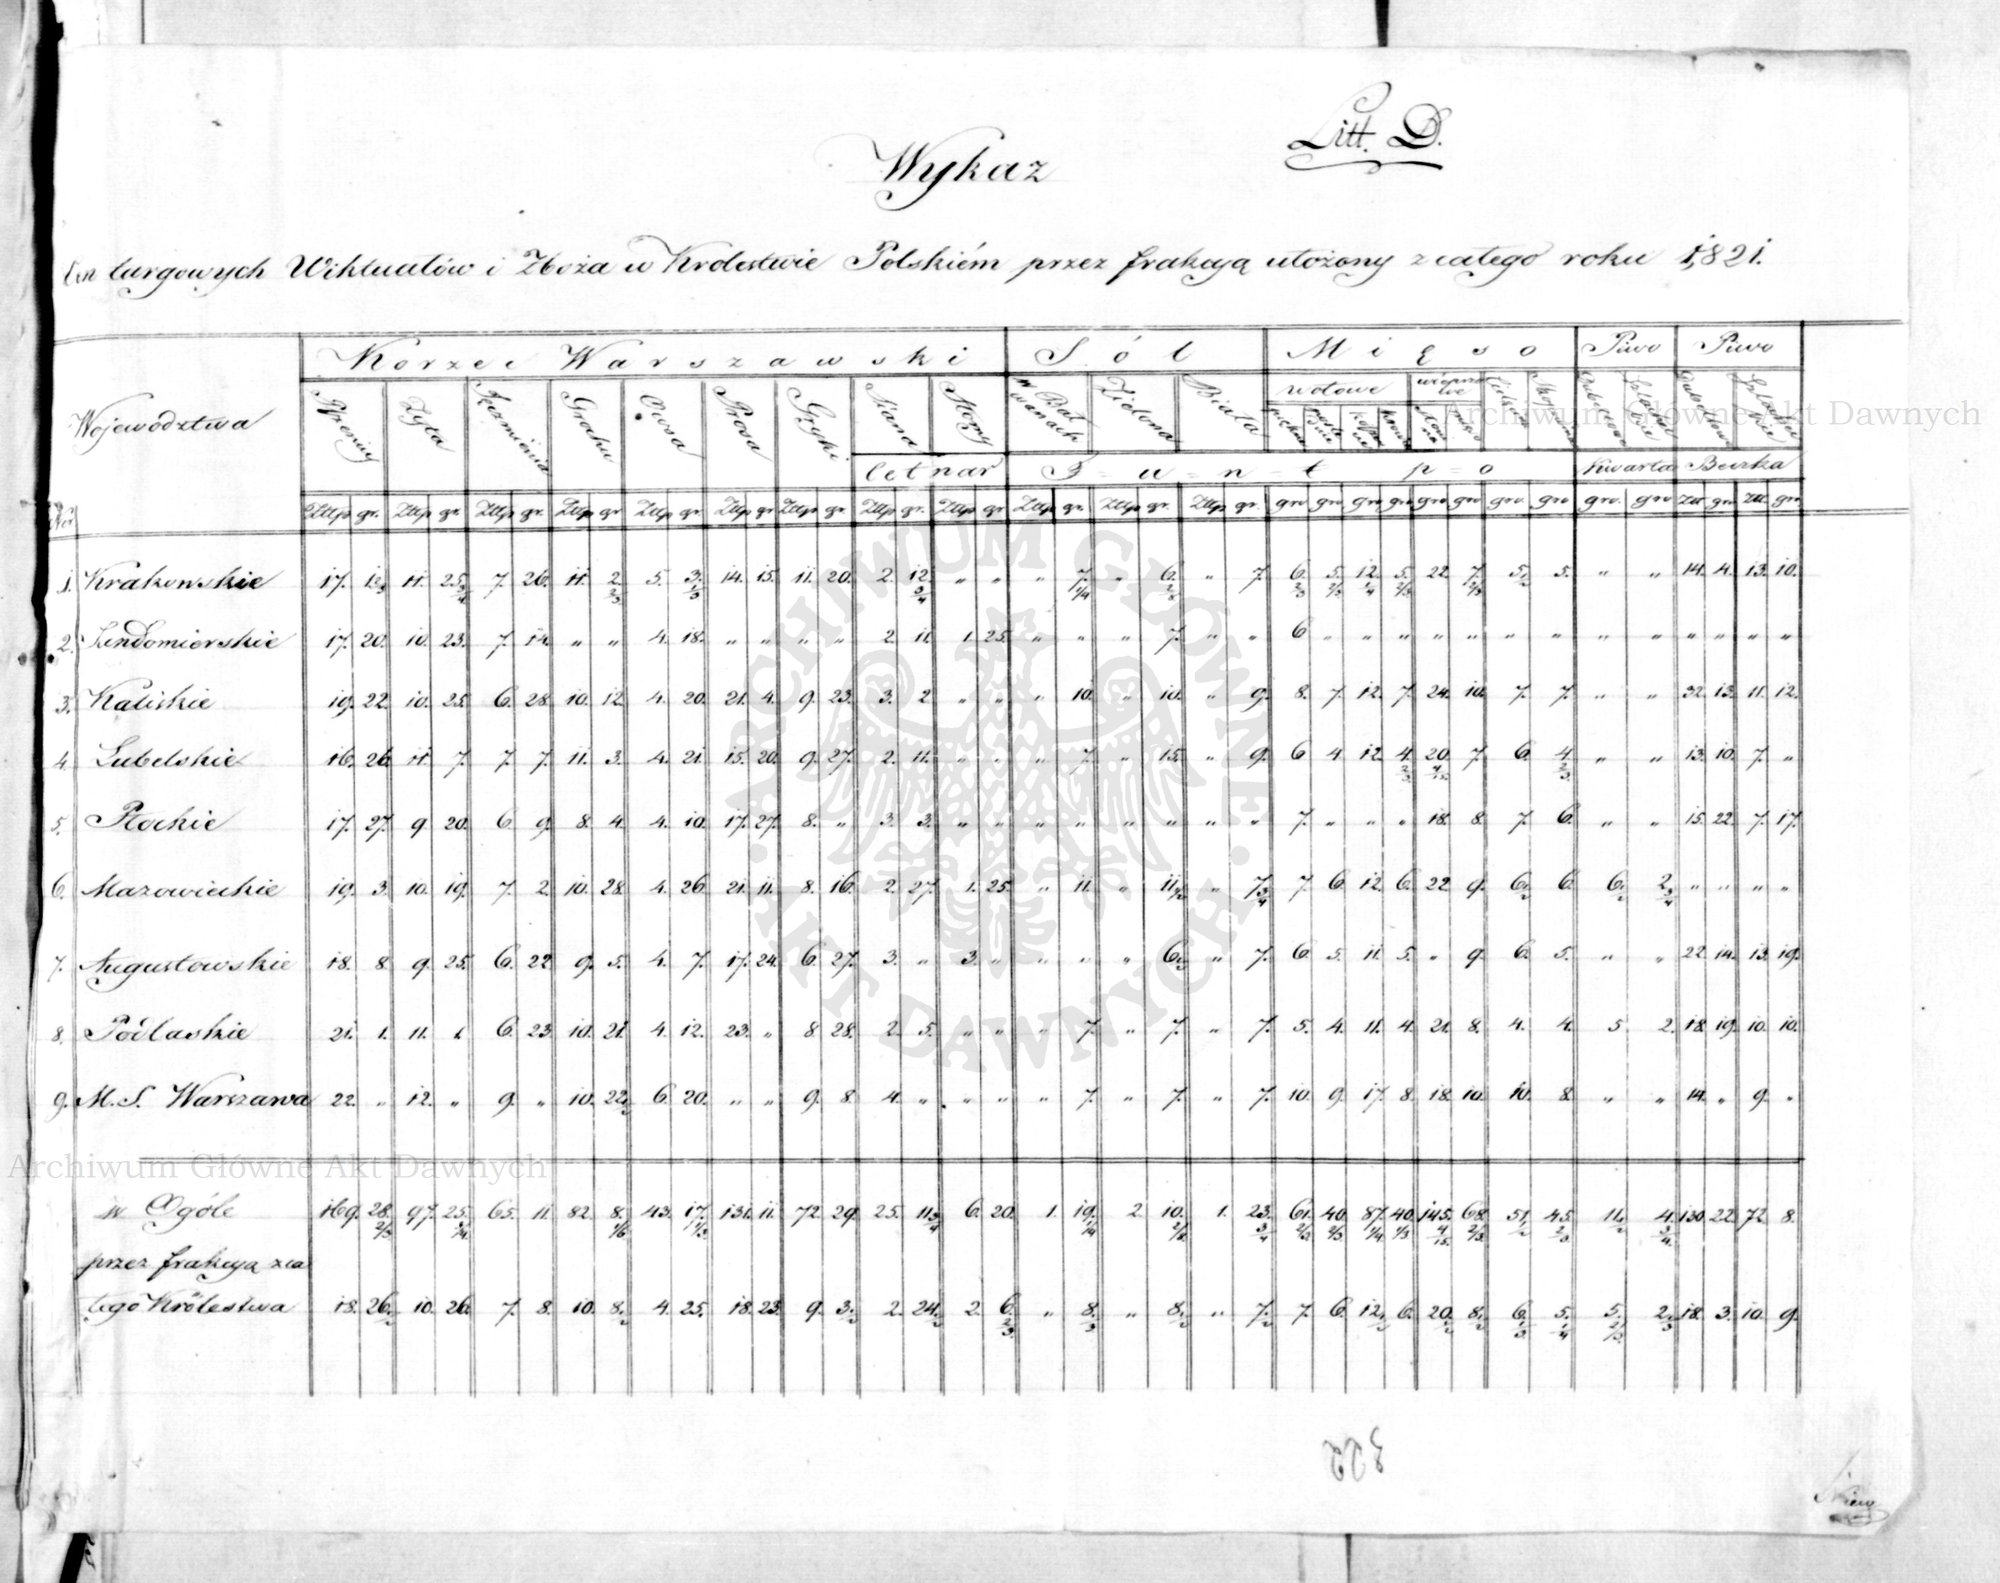 Litt. D.
Wykaz
Cen targowych Wiktuałów i Zboża w Krolestwie Polskiém przez frakcyą ułożony z całego roku 1821.
Województwa Korzec Warszawski Sól Mięso Piwo Piwo
Pszenicy Żyta Jęczmienia Grochu Owsa Prosa Gryki Siana Słomy w Bałwanach Zielona Biała wołowe wieprzowe Cielęce Skopowe Dubeltowe Szlabeckie Dubeltowe
Cetnar F-u-n-t p-o Kwarta Beczka
Ner Złtp gr. Złtp gr. Złtp gr. Złtp gr Złtp gr. Złtp gr Złtp gr. Złtp gr. Złtp gr Złtp gr. Złtp gr. Złtp gr. gro gro gro gro gro gro gro gro gro. gro Złt gro Złt. gro
1. Krakowskie 17. 12 11. 25 3/4 7. 26. 11. 2 2/3 5. 3. 1/3 14. 15. 11. 20. 2. 12. 3/4 " " " 7. 1/4 " 6. 2/8 " 7. 6. 2/3 5. 2/3 12. 1/4 5. 2/3 22. 7. 2/3 5 1/2 5. " " 14. 4. 13. 10.
2. Sendomierskie 17. 20. 10. 23. 7. 14. " " 4. 18. " " " " 2. 11. 1. 25. " " " 7. " " 6 " " " " " " " " " " " " "
3. Kaliskie 19. 22. 10. 25. 6. 28. 10. 12. 4. 20. 21. 4. 9. 23. 3. 2 " " " 10. " 10. " 9. 8. 7. 12. 7. 24. 10. 7. 7. " " 32. 13. 11. 12.
4. Lubelskie 16. 26. 11. 7. 7. 7. 11. 3. 4. 21. 15. 20. 9. 27. 2. 11. " " " 7. " 15. " 9. 6 4. 12. 4. 2/3 20. 4/15 7. 6. 4 2/3 " " 13. 10. 7. "
5. Płockie 17. 27. 9. 20. 6. 9. 8. 4. 4. 10. 17. 27. 8. " 3. 3. " " " " " " " " 7. " " " 18. 8. 7. 6. " " 15. 22. 7. 17.
6. Mazowieckie 19. 3. 10. 19. 7. 2. 10. 28. 4. 26. 21. 11. 8. 16. 2. 27. 1. 25. " 11. " 11 1/2 " 7 3/4 7. 6. 12. 6. 22. 9. 6 1/2 6. 6 1/2 2 3/4 " " " "
7. Augustowskie 18. 8. 9. 25. 6. 22 9. 5. 4. 7. 17. 24. 6. 27. 3. " 3. " " " " 6 1/2 " 7. 6. 5. 11. 5. " 9. 6. 5. " " 22. 14. 13. 19.
8. Podlaskie 21. 1. 11. 1. 6. 23. 10. 21. 4. 12. 23. " 8. 28. 2. 5. " " " 7. " 7. " 7. 5. 4. 11. 4. 21. 8. 4. 4. 5 2. 18. 19. 10. 10.
9. M. S. Warszawa 22. " 12. " 9. " 10. 22 1/2 6. 20. " " 9. 8. 4. " " " " 7. " 7. " 7. 10. 9. 17. 8. 18. 10. 10. 8. " " 14. " 9. "
w Ogóle 169. 28. 2/3 97. 25. 3/4 65. 11. 82. 8. 1/6 43. 17. 1/3 131. 11. 72. 29. 25. 11 3/4 6. 20. 1. 19. 1/4 2. 10. 2/8 1. 23. 3/4 61. 2/3 40. 2/3 87. 1/4 40. 1/3 145. 4/15 68. 2/3 51 1/2 45. 2/3 11 1/2 4. 3/4 130. 22. 72. 8.
przez frakcyą z ca
łego Królestwa 18. 26 1/2 10. 26. 7. 8. 10. 8 1/2 4. 25. 18. 23. 9. 3 1/2 2. 24 1/2 2. 6. 2/3 " 8. 1/3 " 8 1/2 " 7 1/2 7. 6. 12 1/2 6. 20 1/2 8 1/2 6. 1/3 5. 1/4 5. 2/3 2 1/3 18. 3. 10. 9.
322
Archiwum Główne Akt Dawnych
Archiwum Główne Akt Dawnych
ARCHIWUM GŁÓWNE
AKT DAWNYCH